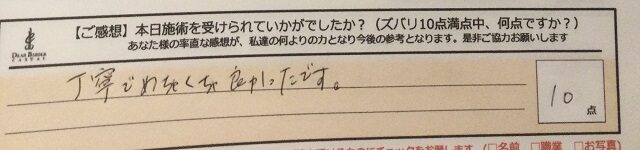 【ご感想】本日施術を受けられていかがでしたか？（ズバリ10点満点中、何点ですか？）
あなた様の率直な感想が、私達の何よりの力となり今後の参考となります。是非ご協力お願いします
丁寧でめちゃくちゃ良かったです。
10点
にチェックをお願します（□名前 □職業 □お写真）